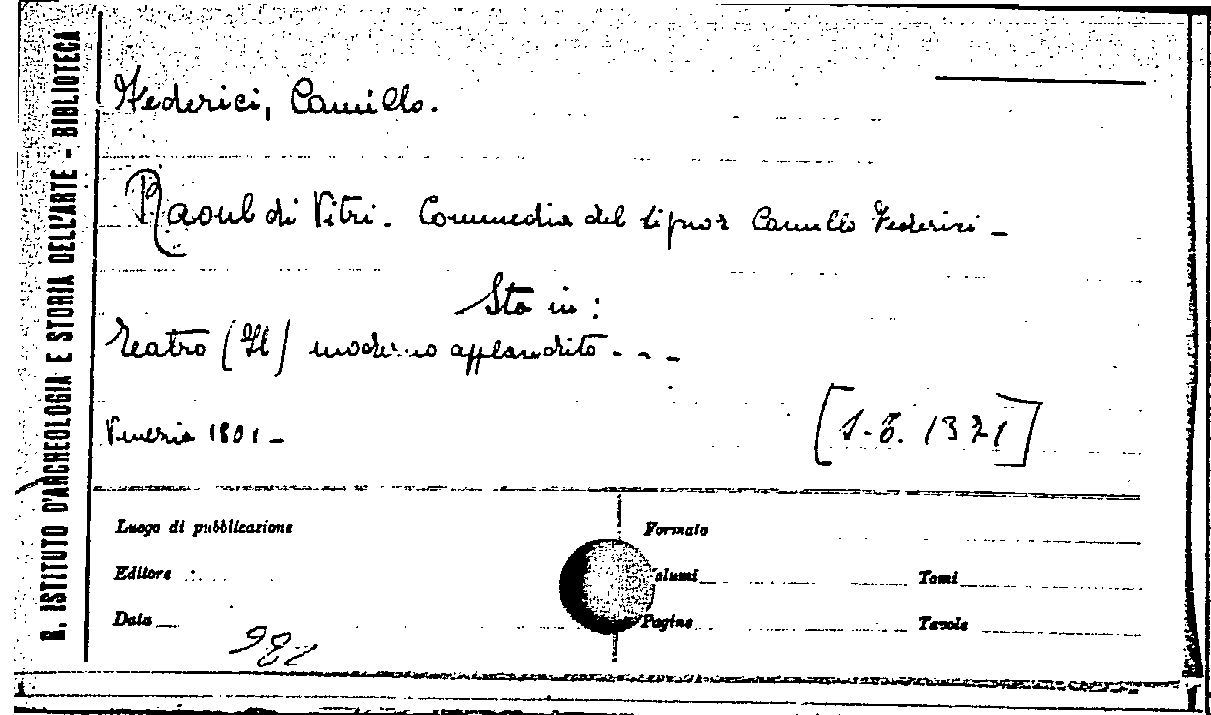 R. ISTITUTO D'ARCHEOLOGIA E STORIA DELL'ARTE - BIBLIOTECA
Federici, Camillo.
Raoul di Vitri. Commedia del signor Camillo Federici -
Sta in:
Teatro (Il) moderno applaudito - - -
Venezia 1801 -
[S.B. 1321]
Luogo di pubblicazione
Formato
Editore
Volumi
Tomi
Data
Pagine
Tavole